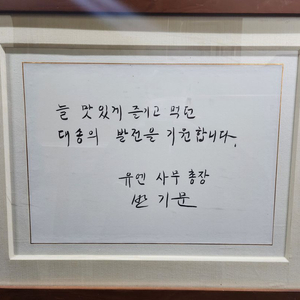 늘 맛있게 즐기고 먹던
대송의 발전을 기원합니다.
유엔 사무총장
반기문